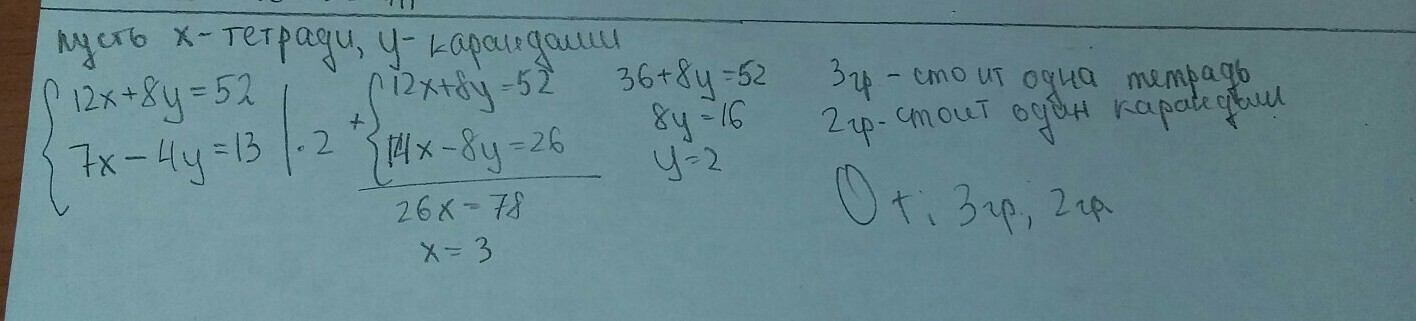 пусть x-тетради, y-карандаши
12x+8y=52
7x-4y=13 | ·2
+ 12x+8y=52
14x-8y=26
26x=78
x=3
36+8y=52
8y=16
y=2
3гр-стоит одна тетрадь
2гр-стоит один карандаш
От: 3гр; 2гр